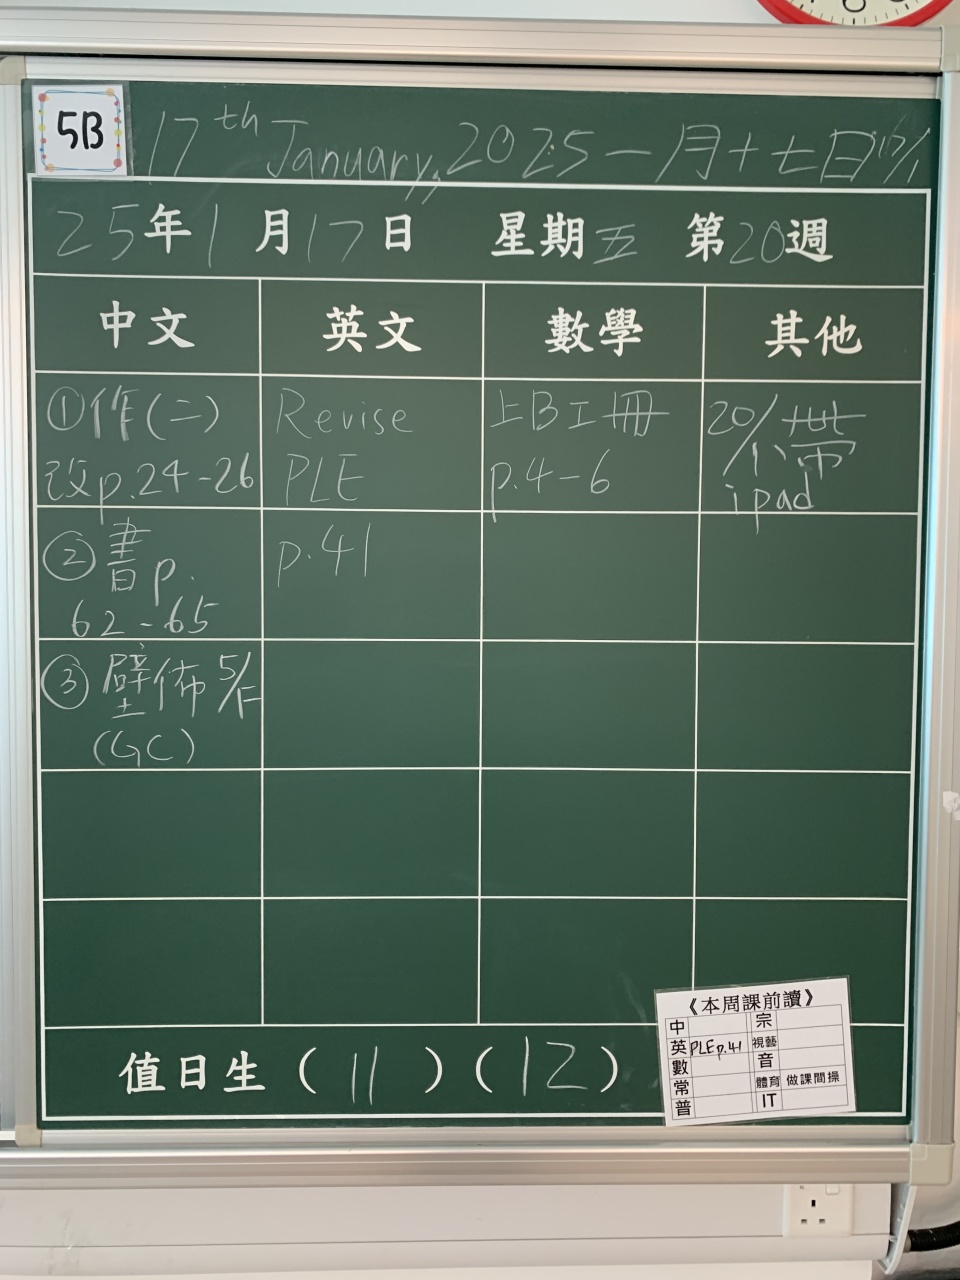 5B
17th January, 2025 一月十七日 17/1
25年1月17日 星期五 第20週
中文 英文 數學 其他
①作(二)
改p.24-26
Revise
PLE
上B工冊
p.4-6
20/1不帶
ipad
②書p.
62-65
p.41
③壁佈 5/F
(GC)
值日生 (11) (12)
《本周課前讀》
中 宗
英 PLE p.41 視藝
數 音
常 體育 做課間操
普 IT